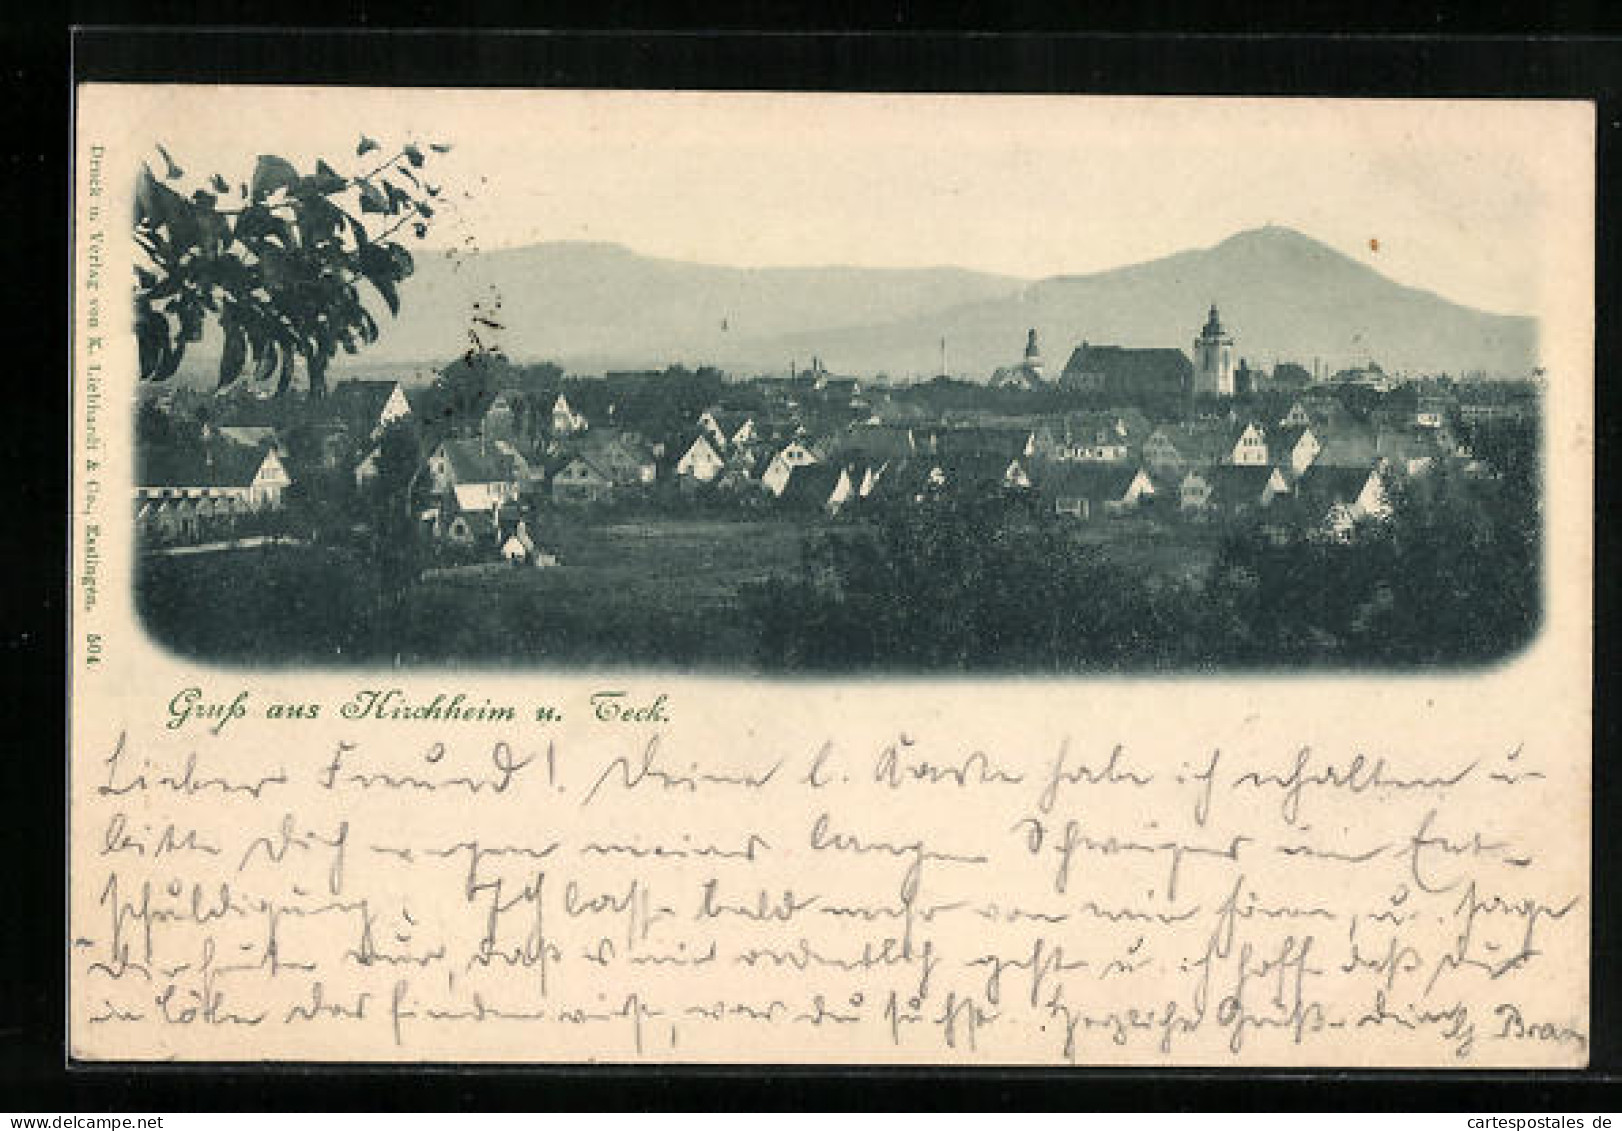 Druck u. Verlag von K. Liebhardt & Co., Esslingen. 504.
Gruß aus Kirchheim u. Teck.
Lieber Freund! Deine l. Karte habe ich erhalten u.
bitte Dich wegen meines langen Schweigens um Ent-
schuldigung. Ich lasse bald mehr von mir hören, u. sage
Dir heute nur, daß es mir ordentlich geht u. ich hoffe daß Du
in Köln das finden wirst, was du suchst. Herzliche Grüße Dein
cartespostales de